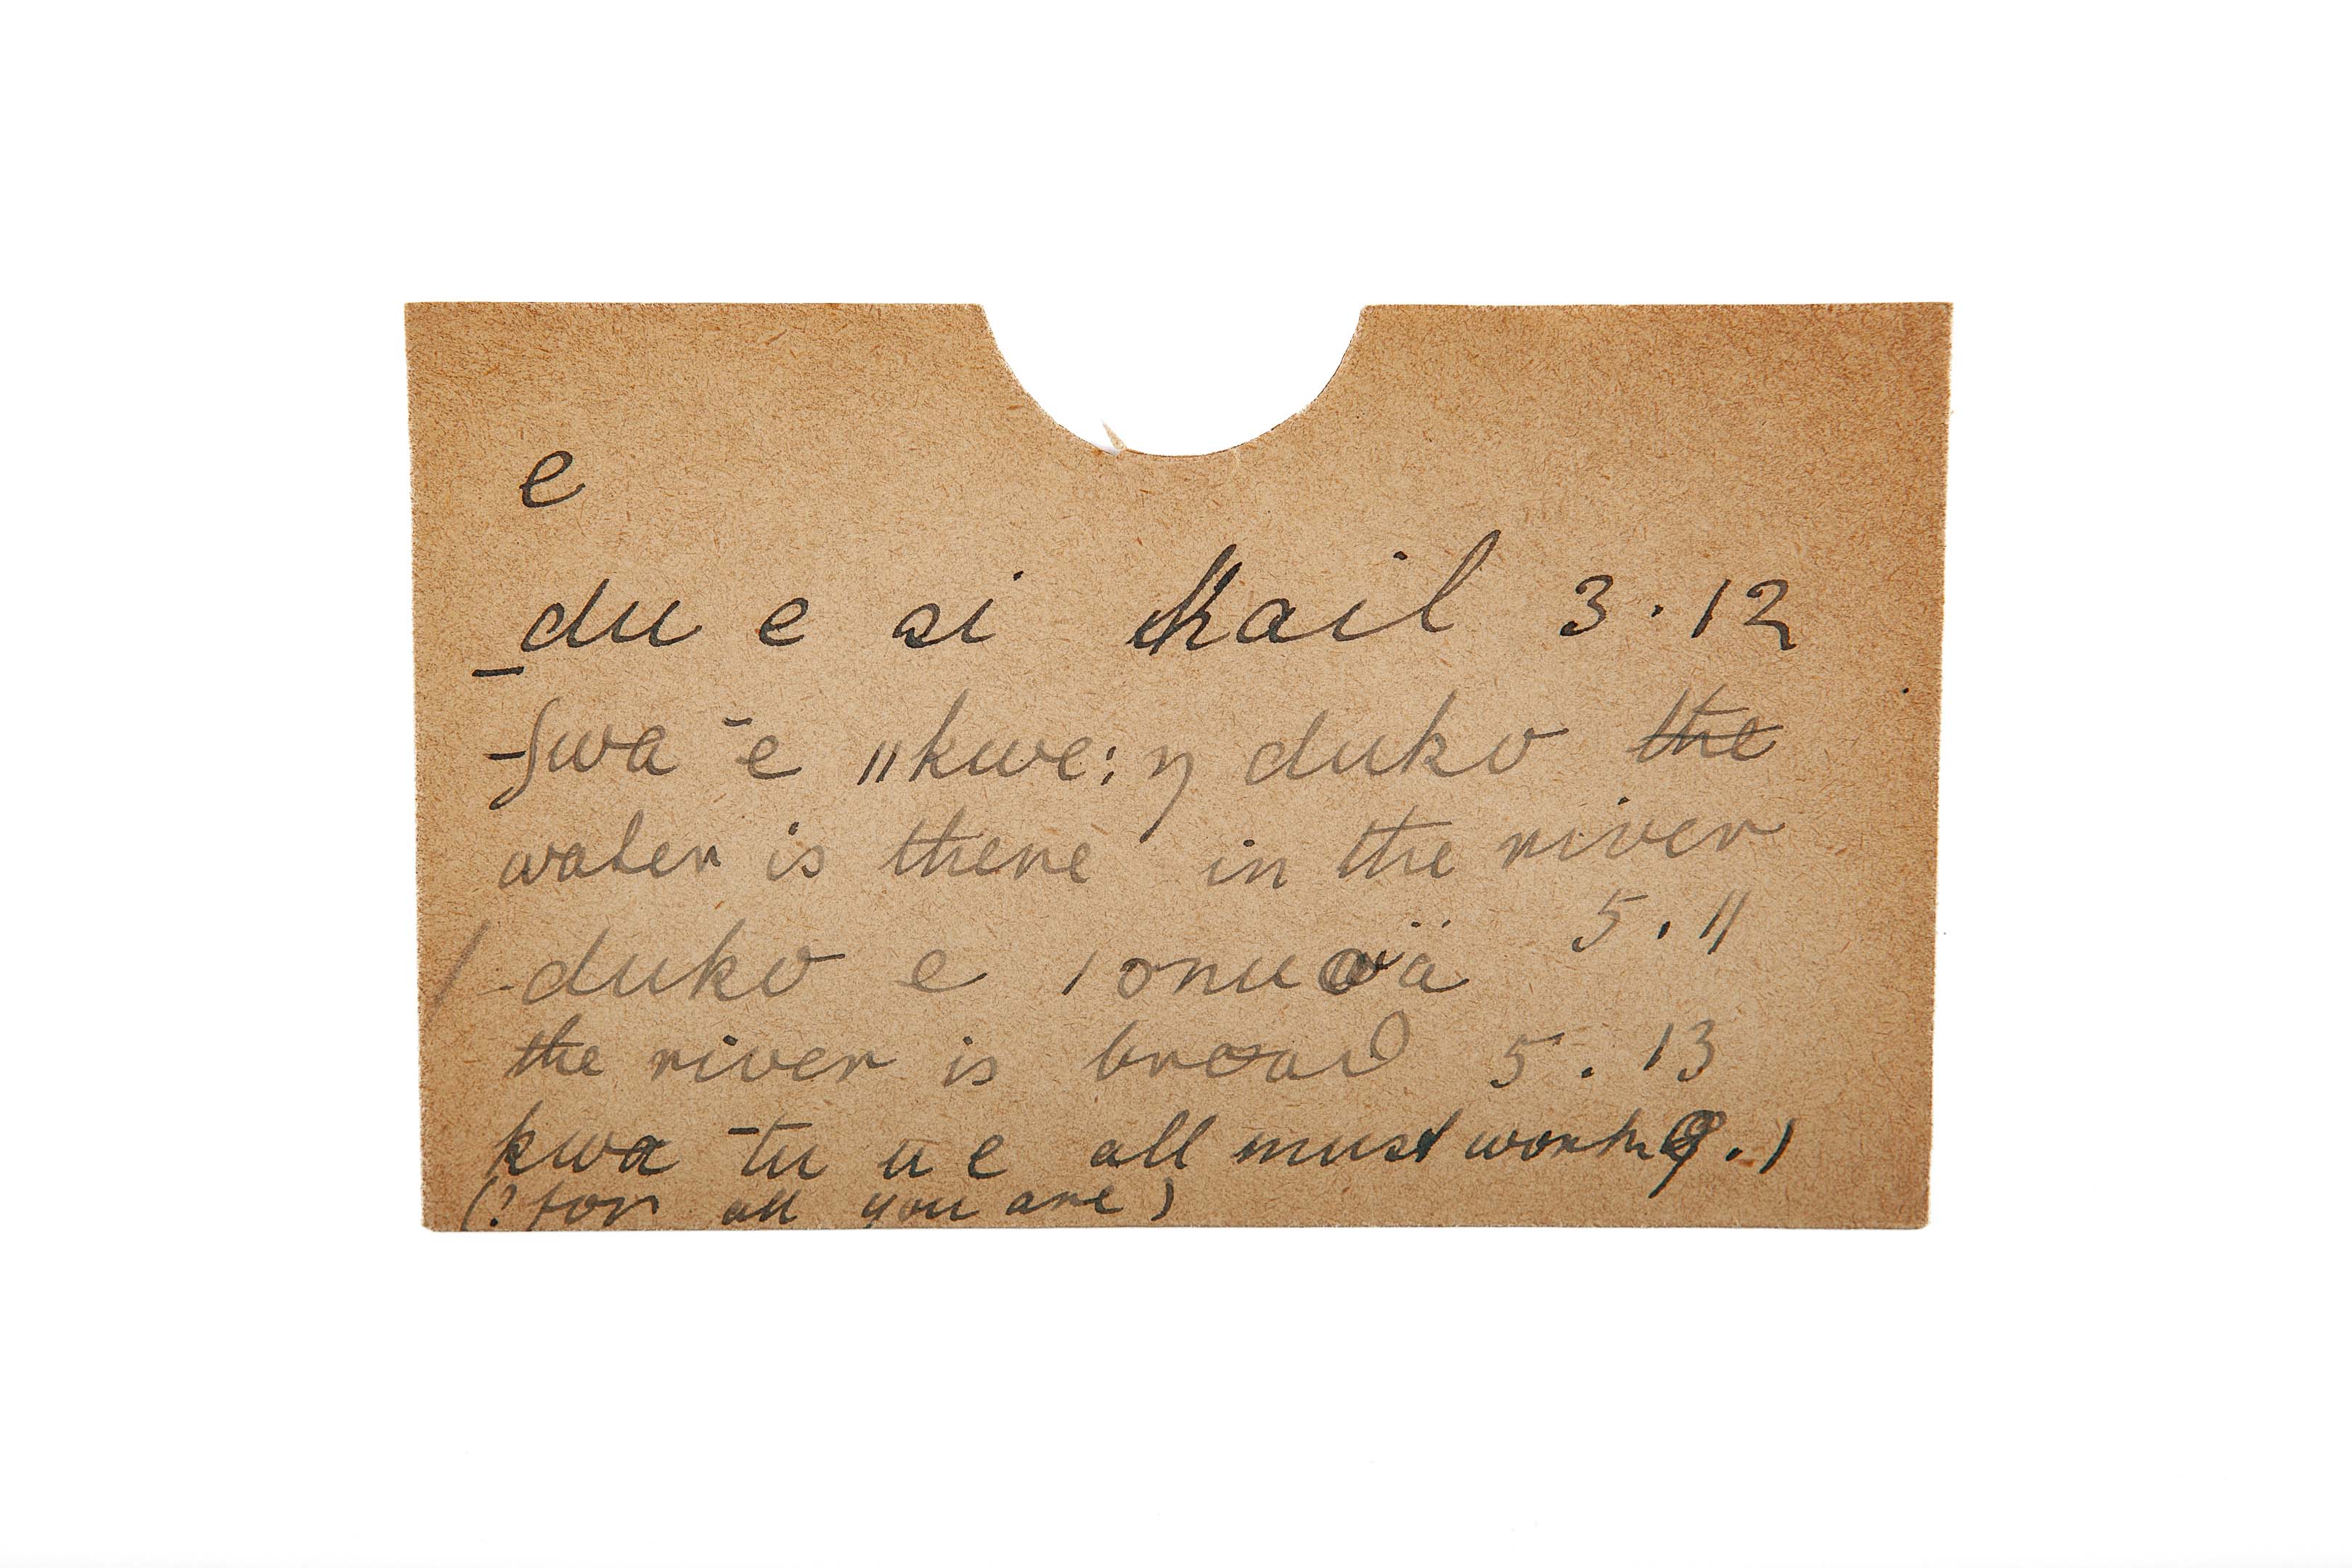 e
_du e si kail 3.12
-ʃwa ˉe ǁkwe:ŋ duko the
water is there in the river
5.11
/-duko e ǀonu ä
the river is broad 5.13
kwa ˉtu u e all must work 9.)
(? for all you are)